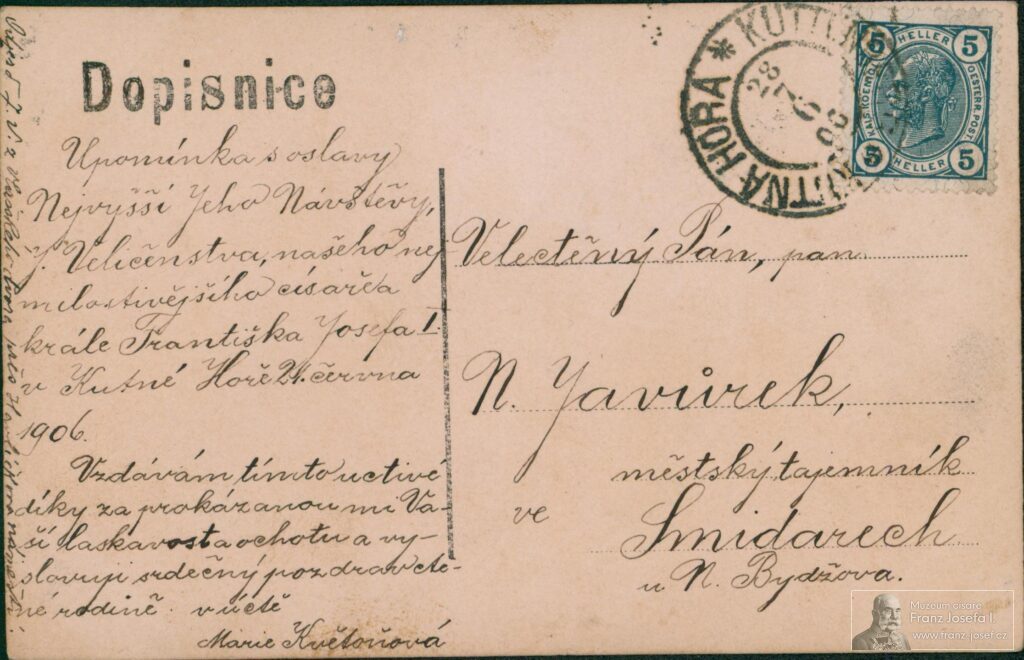 Dopisnice
Upomínka s oslavy
Nejvyšší Jeho Návštěvy,
J. Veličenstva, našeho nej
milostivějšího císařča
krále Františka Josefa I.
v Kutné Hoře 21. června
1906.
Vzdávám tímto uctivé
díky za prokázanou mi Va-
ší laskavost a ochotu a vy-
slovuji srdečný pozdrav cte-
né rodině. v úctě
Marie Květoňová
* KUTTENBERG *
KUTNÁ HORA
28
06
5 HELLER 5
KAIS. KOENIGL. OESTERR. POST
5 HELLER 5
Velectěný Pán, pan
N. Javůrek,
městský tajemník
ve Smidarech
u N. Bydžova.
Muzeum císaře
Franz Josefa I.
www.franz-josef.cz